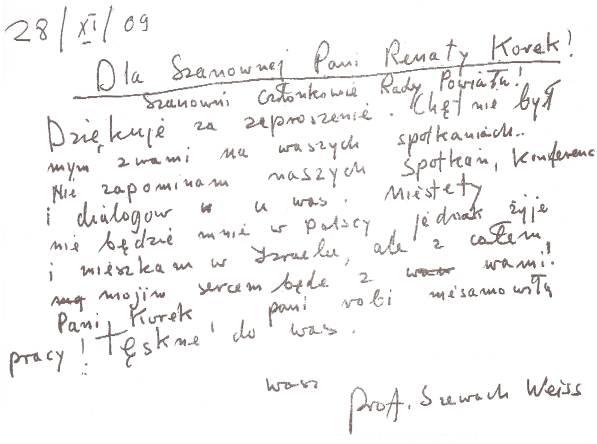 28/XI/09
Dla Szanownej Pani Renaty Korek!
Szanowni członkowie Rady Powiatu!
Dziękuje za zaproszenie. Chętnie był
mym z wami na waszych spotkaniach..
Nie zapominam naszych spotkań, konferenc
i dialogow u was. Niestety
nie będzie mnie w Polscy jednak żyje
i mieszkam w Izraelu, ale z całem
mojim sercem będe z wami!
Pani Korek pani robi niesamowitą
pracy! Tęskne do was.
wasz
prof. Szewach Weiss